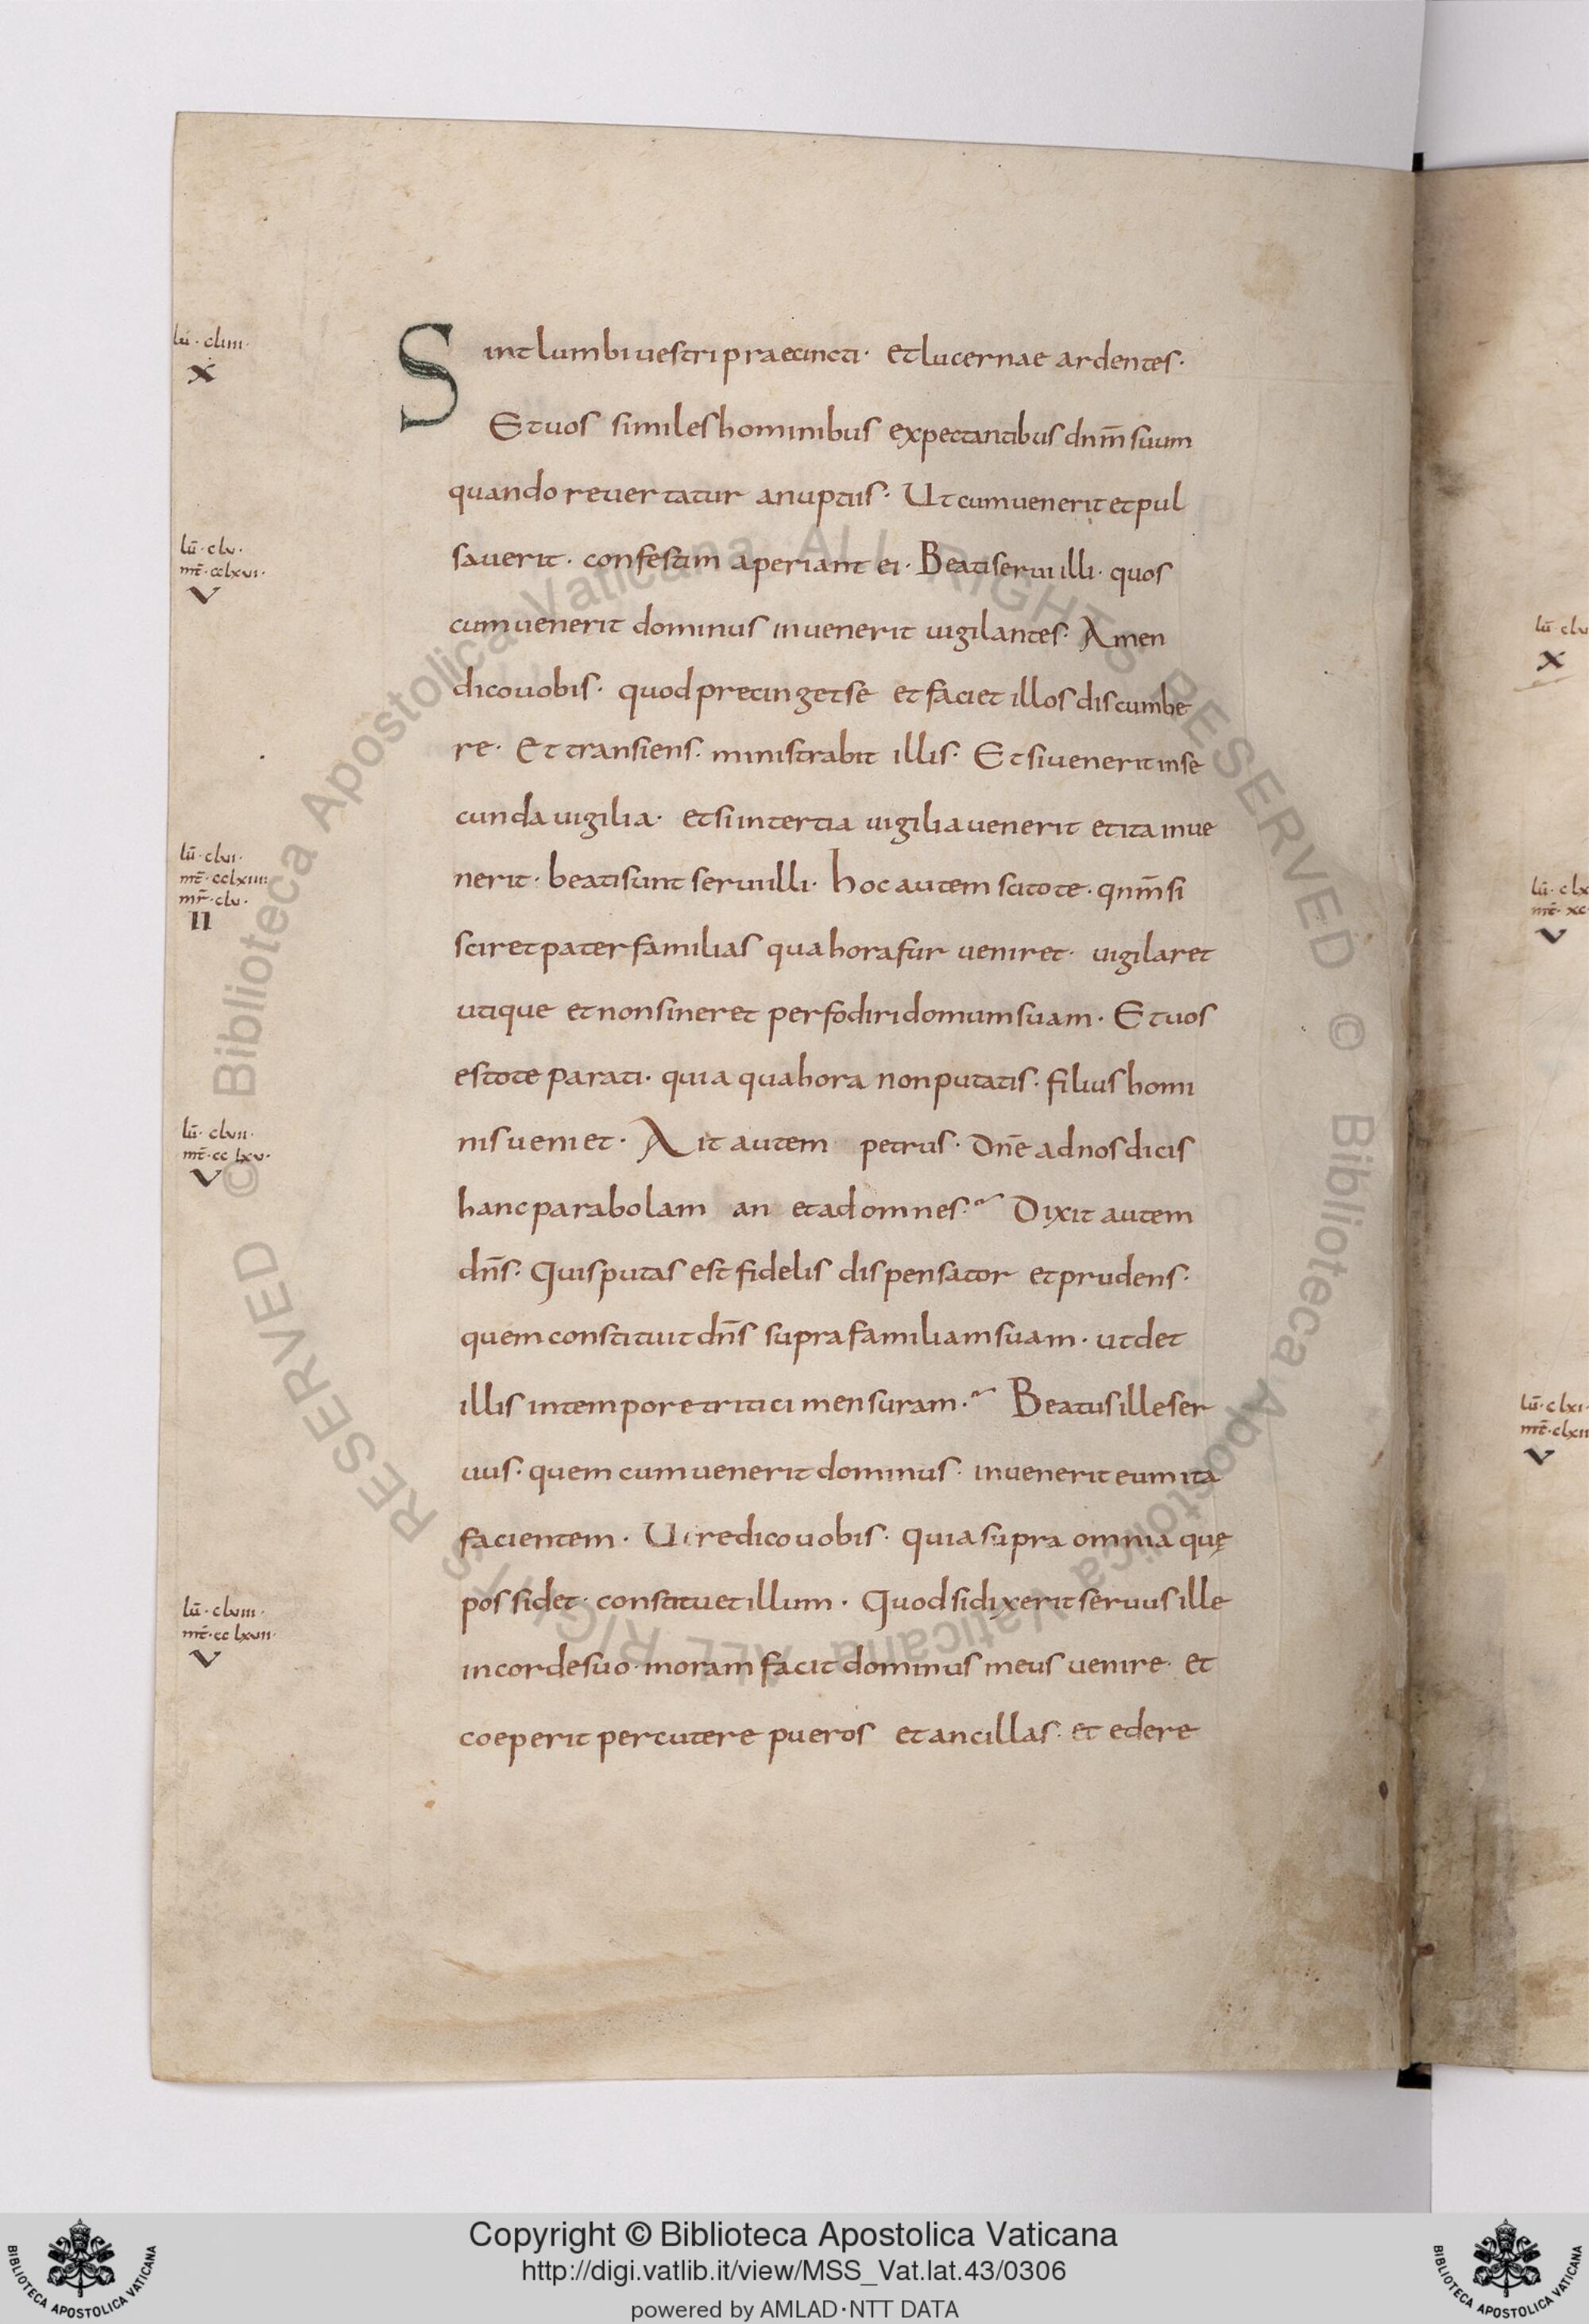 lū · cliiii ·
X
Sint lumbi uestri praecincti · et lucernae ardentes ·
Et uos similes hominibus expectantibus dnm̄ suum
quando reuertatur a nuptiis · Ut cum uenerit et pul
lū · clv ·
mt̄ · cclxvi ·
V
sauerit · confestim aperiant ei · Beati serui illi · quos
cum uenerit dominus inuenerit uigilantes · Amen
dico uobis · quod precinget se et faciet illos discumbe
re · Et transiens · ministrabit illis · Et si uenerit in se
cunda uigilia · et si in tertia uigilia uenerit et ita inue
lū · clvi ·
mt̄ · cclxiiii
mr̄ · clv ·
II
nerit · beati sunt serui illi · hoc autem scitote · qnm̄ si
sciret pater familias qua hora fur ueniret · uigilaret
utique et non sineret perfodiri domum suam · Et uos
estote parati · quia qua hora non putatis · filius homi
lū · clvii ·
mt̄ · cclxv ·
V
nis ueniet · Ait autem petrus · Dnē ad nos dicis
hanc parabolam an et ad omnes · Dixit autem
dns̄ · Quis putas est fidelis dispensator et prudens ·
quem constituit dns̄ supra familiam suam · ut det
illis in tempore tritici mensuram · Beatus ille ser
uus · quem cum uenerit dominus · inuenerit eum ita
facientem · Uere dico uobis · quia supra omnia quę
lū · clviii ·
mt̄ · cclxvii ·
V
possidet · constituet illum · Quod si dixerit seruus ille
in corde suo · moram facit dominus meus uenire · et
coeperit percutere pueros et ancillas · et edere
X
V
V
© Biblioteca Apostolica Vaticana ALL RIGHTS RESERVED © Biblioteca Apostolica Vaticana ALL RIGHTS RESERVED
Copyright © Biblioteca Apostolica Vaticana
http://digi.vatlib.it/view/MSS_Vat.lat.43/0306
powered by AMLAD·NTT DATA
BIBLIOTECA APOSTOLICA VATICANA
BIBLIOTECA APOSTOLICA VATICANA